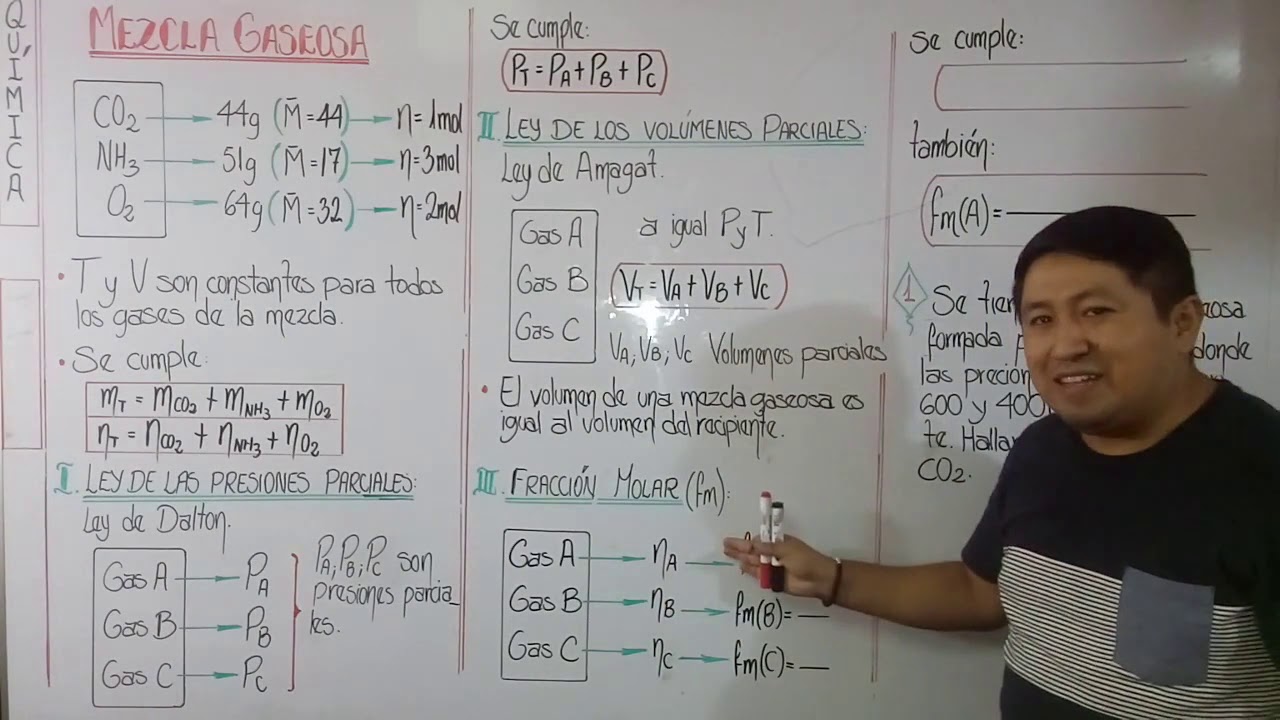 QUÍMICA
MEZCLA GASEOSA
CO₂ → 44g (M̄=44) → η=1mol
NH₃ → 51g (M̄=17) → η=3mol
O₂ → 64g (M̄=32) → η=2mol
• T y V son constantes para todos
los gases de la mezcla.
• Se cumple:
m_T = m_CO₂ + m_NH₃ + m_O₂
η_T = η_CO₂ + η_NH₃ + η_O₂
I. LEY DE LAS PRESIONES PARCIALES:
Ley de Dalton.
Gas A → P_A
Gas B → P_B
Gas C → P_C
P_A; P_B; P_C son
presiones parcia_
les.
Se cumple:
P_T = P_A + P_B + P_C
II. LEY DE LOS VOLÚMENES PARCIALES:
Ley de Amagat.
Gas A
Gas B
Gas C
a igual P y T.
V_T = V_A + V_B + V_C
V_A; V_B; V_C Volumenes parciales
• El volumen de una mezcla gaseosa es
igual al volumen del recipiente.
III. FRACCIÓN MOLAR (fm):
Gas A → η_A →
Gas B → η_B → fm(B)= —
Gas C → η_C → fm(C)= —
Se cumple:
también:
fm(A)= —
1 Se
formada donde
las
600 y 400
te. Halla
CO₂.